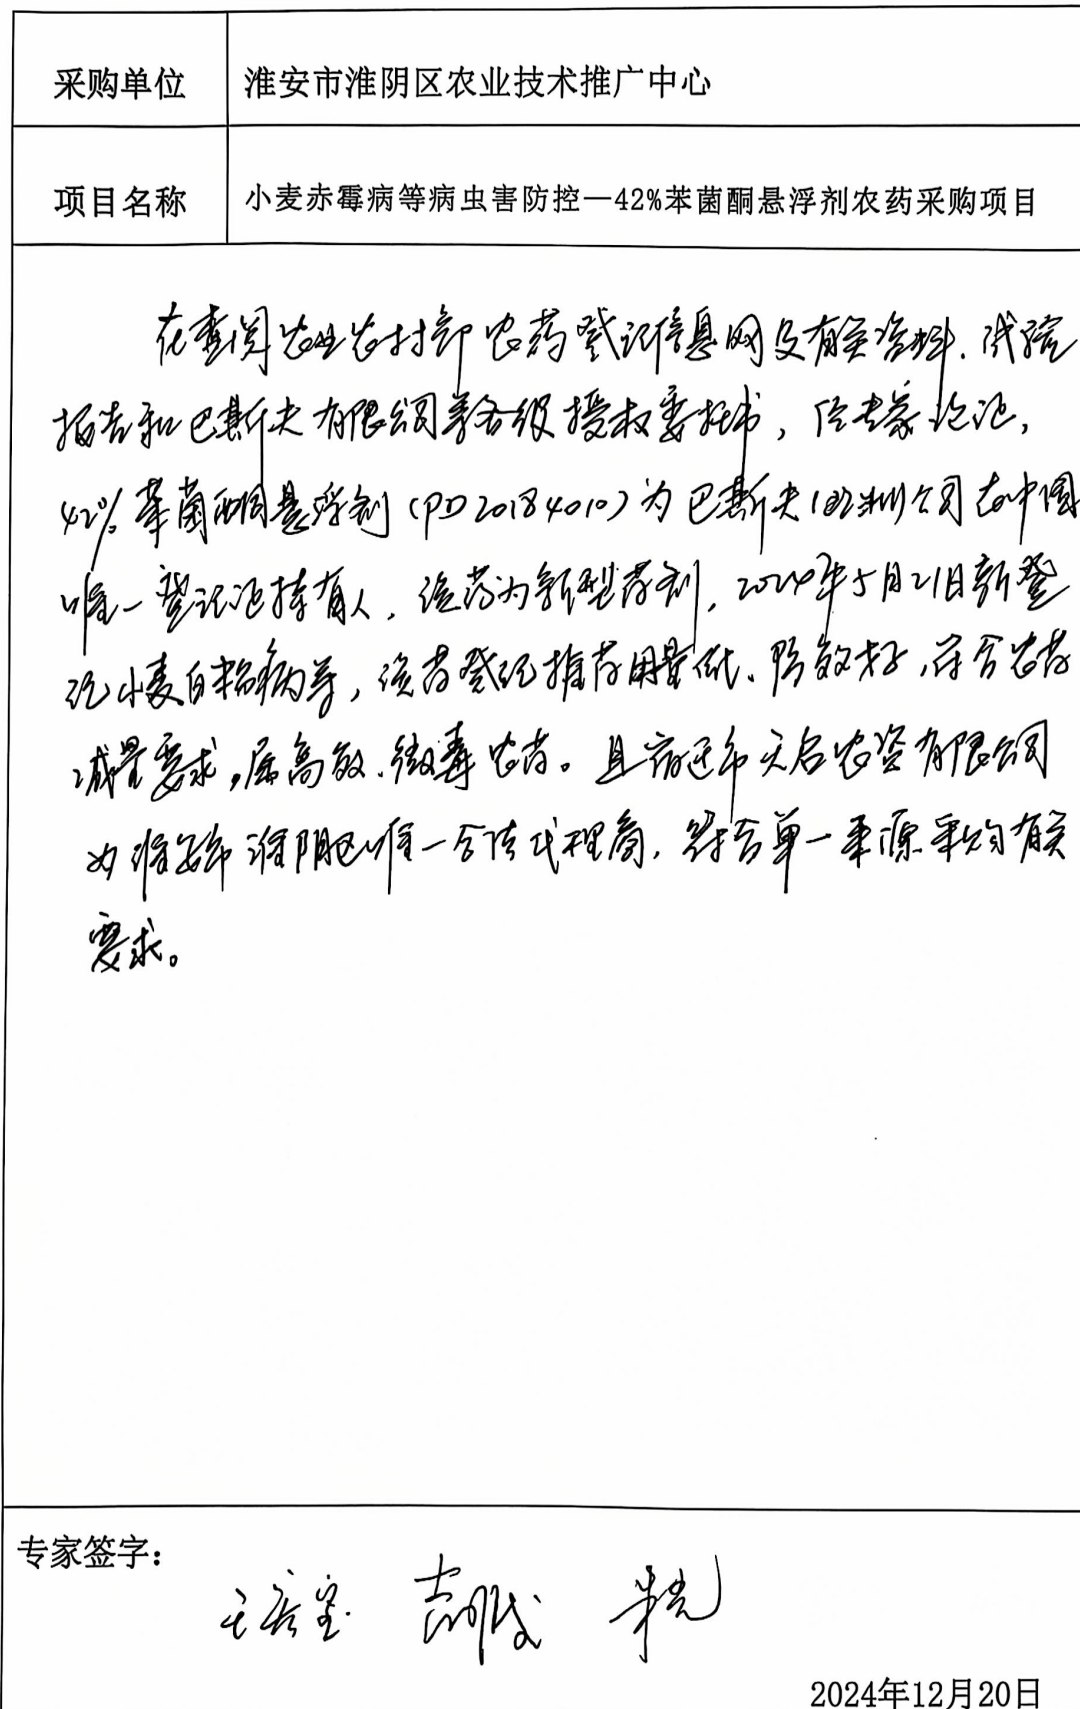 采购单位
淮安市淮阴区农业技术推广中心
项目名称
小麦赤霉病等病虫害防控—42%苯菌酮悬浮剂农药采购项目
在查阅农业农村部农药登记信息网及有关资料、试验
报告和巴斯夫有限公司等各级授权委托书，经专家论证，
42%苯菌酮悬浮剂（PD20184010）为巴斯夫欧洲公司在中国
唯一登记证持有人，该药为新型药剂，2024年5月21日新登
记小麦白粉病等，该药登记推荐用量低、防效好，符合农药
减量要求，属高效、微毒农药。且宿迁市天名农资有限公司
为淮安市淮阴区唯一合法代理商，符合单一来源采购有关
要求。
专家签字：
2024年12月20日